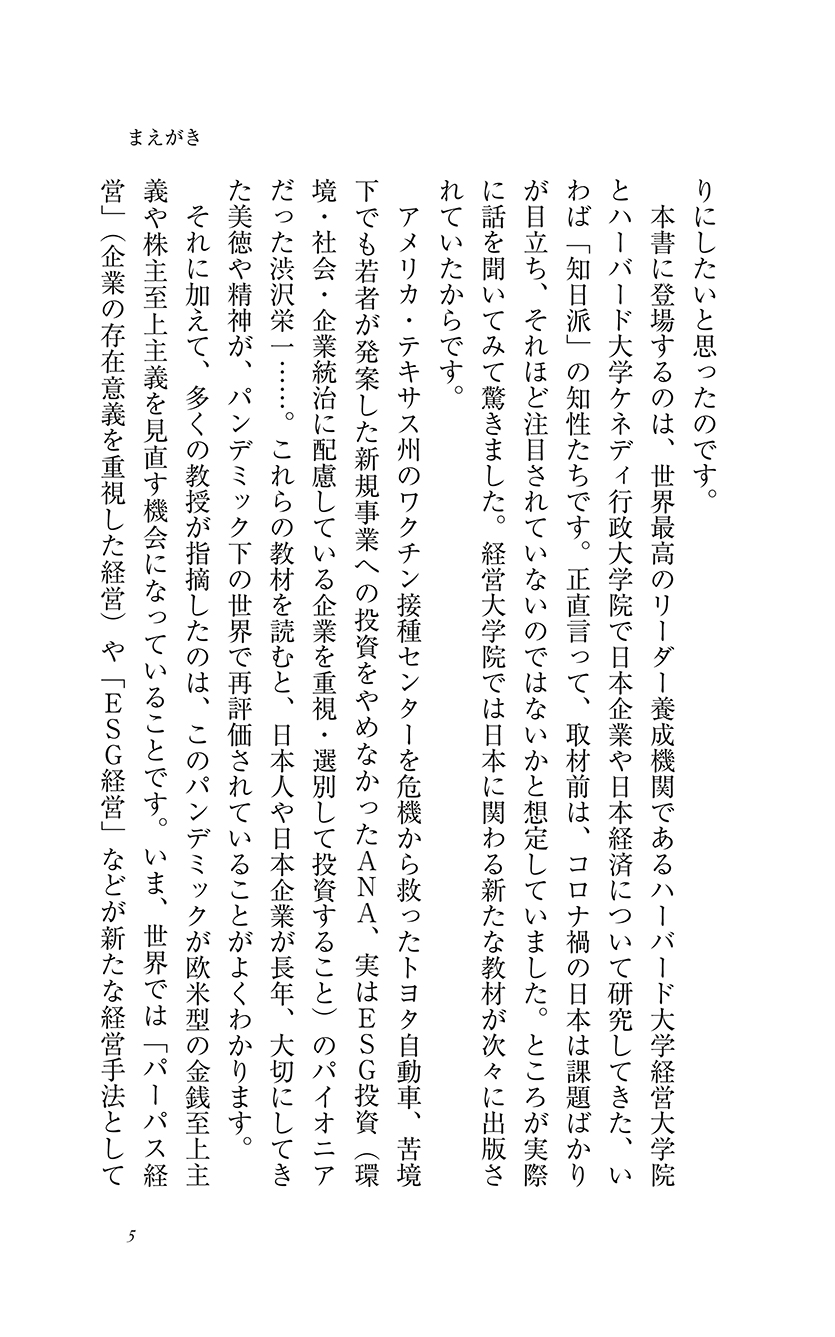 まえがき
りにしたいと思ったのです。
本書に登場するのは、世界最高のリーダー養成機関であるハーバード大学経営大学院
とハーバード大学ケネディ行政大学院で日本企業や日本経済について研究してきた、い
わば「知日派」の知性たちです。正直言って、取材前は、コロナ禍の日本は課題ばかり
が目立ち、それほど注目されていないのではないかと想定していました。ところが実際
に話を聞いてみて驚きました。経営大学院では日本に関わる新たな教材が次々に出版さ
れていたからです。
アメリカ・テキサス州のワクチン接種センターを危機から救ったトヨタ自動車、苦境
下でも若者が発案した新規事業への投資をやめなかったＡＮＡ、実はＥＳＧ投資（環
境・社会・企業統治に配慮している企業を重視・選別して投資すること）のパイオニア
だった渋沢栄一……。これらの教材を読むと、日本人や日本企業が長年、大切にしてき
た美徳や精神が、パンデミック下の世界で再評価されていることがよくわかります。
それに加えて、多くの教授が指摘したのは、このパンデミックが欧米型の金銭至上主
義や株主至上主義を見直す機会になっていることです。いま、世界では「パーパス経
営」（企業の存在意義を重視した経営）や「ＥＳＧ経営」などが新たな経営手法として
5